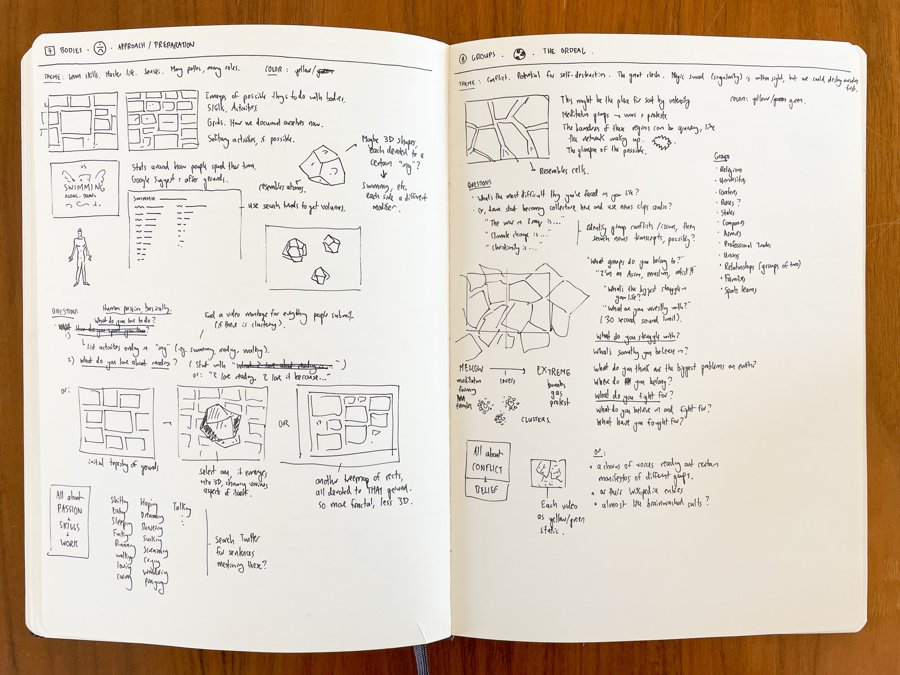 7 BODIES. APPROACH / PREPARATION
THEME: Learn skills. Master life. Senses. Many paths, many roles. COLOR: yellow/green
Images of possible things to do with bodies.
Skills, Activities.
Grids. How we document ourselves now.
Solitary activities, if possible.
SWIMMING
Stats around how people spend their time.
Google suggest after gerunds.
SWIMMING
resembles atoms.
use search trends to get volumes.
Maybe 3D shapes,
each devoted to a
certain "ing"?
swimming, etc.
each side a different
modifier.
QUESTIONS
Human passion basically.
What do you love to do?
1) How do you spend your time?
list activities ending in "ing" (e.g. swimming, reading, walking).
2) What do you love about reading? (Start with "What I love about reading is...")
or: "I love reading. I love it because..."
Build a video montage for everything people submit.
(if there is clustering).
or:
OR
initial tapestry of gerunds
select one, it emerges
into 3D, showing various
aspects of itself.
another heapmap of rects,
all devoted to THAT gerund.
so more fractal, less 3D.
All about
PASSION
+
SKILLS
+
WORK
Shitting
Eating
Sleeping
Fucking
Running
walking
loving
Cumming
Hoping
Dreaming
Dancing
Sucking
Screaming
Crying
Wandering
Praying
Talking
Search Twitter
for sentences
mentioning these?
8 GROUPS. THE ORDEAL.
THEME: Conflict. Potential for self-destruction. The great clash. Magic sword (singularity) is within sight, but we could destroy ourselves
first.
COLOR: yellow/green green.
This might be the place for sort by intensity
Meditation groups → wars + protests
The boundaries of these regions can be quivering, like
the network waking up.
The glimpse of the possible.
Resembles cells.
QUESTIONS
What's the most difficult thing you've faced in your life?
Or, have start becoming collective here and use news clips audio?
"The war in Iraq is..."
"Climate change is..."
"Christianity is..."
Identify group conflicts/issues, then
search news transcripts, possibly?
"What groups do you belong to?"
"I'm an Asian, American, artist"
"What's the biggest struggle in
your life?"
"What are you wrestling with?"
(30 second sound limit).
What do you struggle with?
What's something you believe in?
What do you think are the biggest problems on earth?
Where do you belong?
What do you fight for?
What do you believe in and fight for?
What have you fought for?
Groups
• Religions
• Universities
• Centers
• Races?
• States
• Companies
• Armies
• Professional Trades
• Unions
• Relationships (groups of two)
• Families
• Sports teams
MELLOW → EXTREME
meditation
forming
families
lovers
bombs
gas
protest
CLUSTERS.
All about
CONFLICT
+
BELIEF
Each video
as yellow/green
static.
OR:
• a chorus of voices reading out certain
manifestos of different groups.
• or their wikipedia entries
• almost like brainwashed cults?